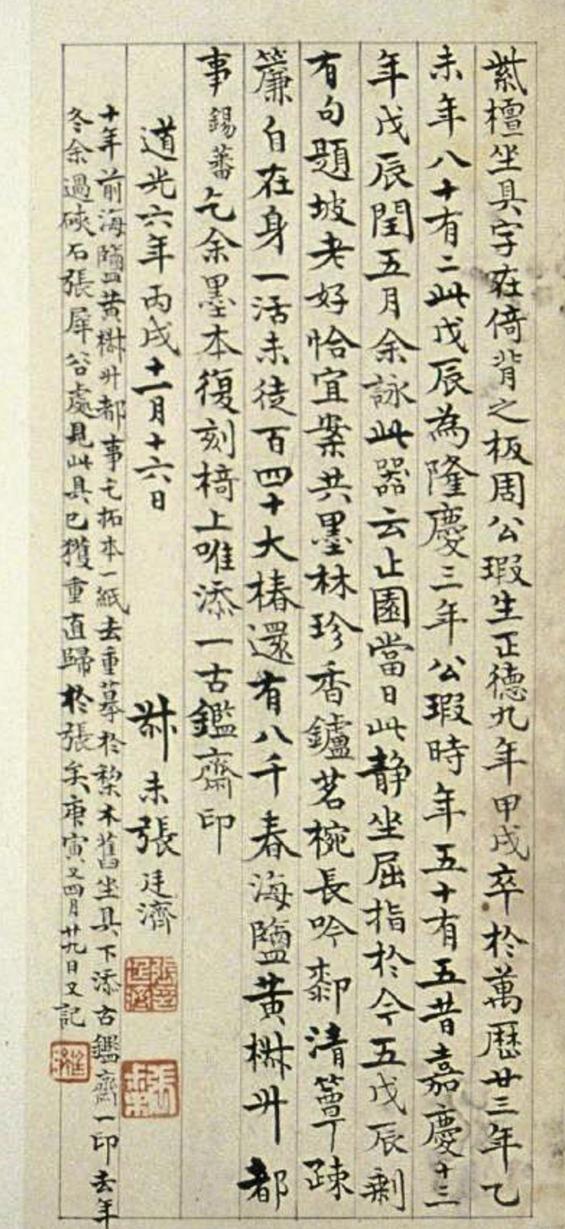 紫檀坐具字在倚背之板周公瑕生正德九年甲戌卒於萬歷廿三年乙
未年八十有二此戊辰為隆慶三年公瑕時年五十有五昔嘉慶十三
年戊辰閏五月余詠此器云止園當日此靜坐屈指於今五戊辰剩
有句題坡老好恰宜案共墨林珍香鑪茗椀長吟清簟疎
簾自在身一活未徒百四十大椿還有八千春海鹽黃椒升都
事錫蕃乞余墨本復刻椅上唯添一古鑑齋印
道光六年丙戌十一月十六日 叔未張廷濟
十年前海鹽黃椒升都事乞拓本一紙去重摹於梨木舊坐具下添古鑑齋一印去年
冬余過硤石張犀谷處見此具已獲重直歸於張矣庚寅又四月廿九日又記